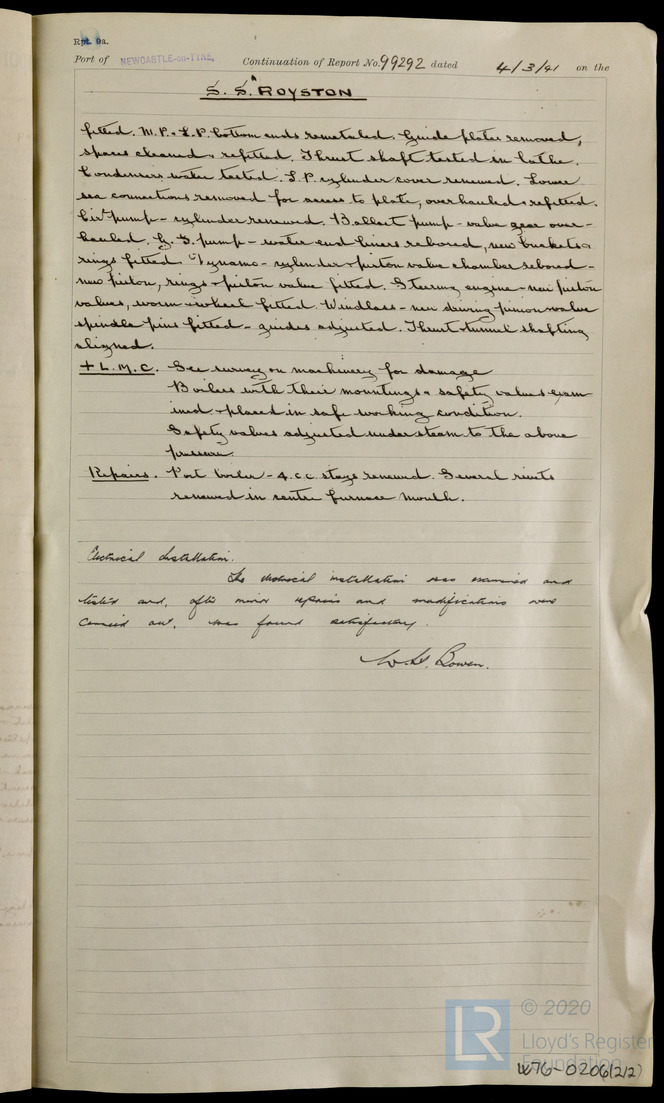 Rpt. 9a.
Port of NEWCASTLE-on-TYNE, Continuation of Report No. 99292 dated 4/3/41 on the
S. S. "ROYSTON
fitted. M.P. & L.P. bottom ends remetaled. Guide plates removed,
spaces cleaned & refitted. Thrust shaft tested in lathe.
Condensers water tested. L.P. cylinder cover renewed. Lower
sea connections removed for access to plate, overhauled & refitted.
Cirg pump - cylinder renewed. Ballast pump - valve gear over-
hauled. G.S. pump - water end liners rebored, new buckets &
rings fitted. Dynamo - cylinder & piston valve chamber rebored -
new piston, rings & piston valve fitted. Steering engine - new piston
valves, worm & wheel fitted. Windlass - new driving pinion valve
spindle pins fitted - guides adjusted. Thrust tunnel shafting
aligned.
+ L.M.C. See survey on machinery for damage
Boilers with their mountings & safety valves exam
ined & placed in safe working condition.
Safety valves adjusted under steam to the above
pressure.
Repairs. Port boiler - 4. c.c. stays renewed. Several rivets
renewed in centre furnace mouth.
Electrical Installation.
The electrical installation was examined and
tested and, after minor repairs and modifications were
carried out, was found satisfactory.
Bowen.
© 2020
LR
Lloyd's Register
Foundation
W76-0206(2/2)